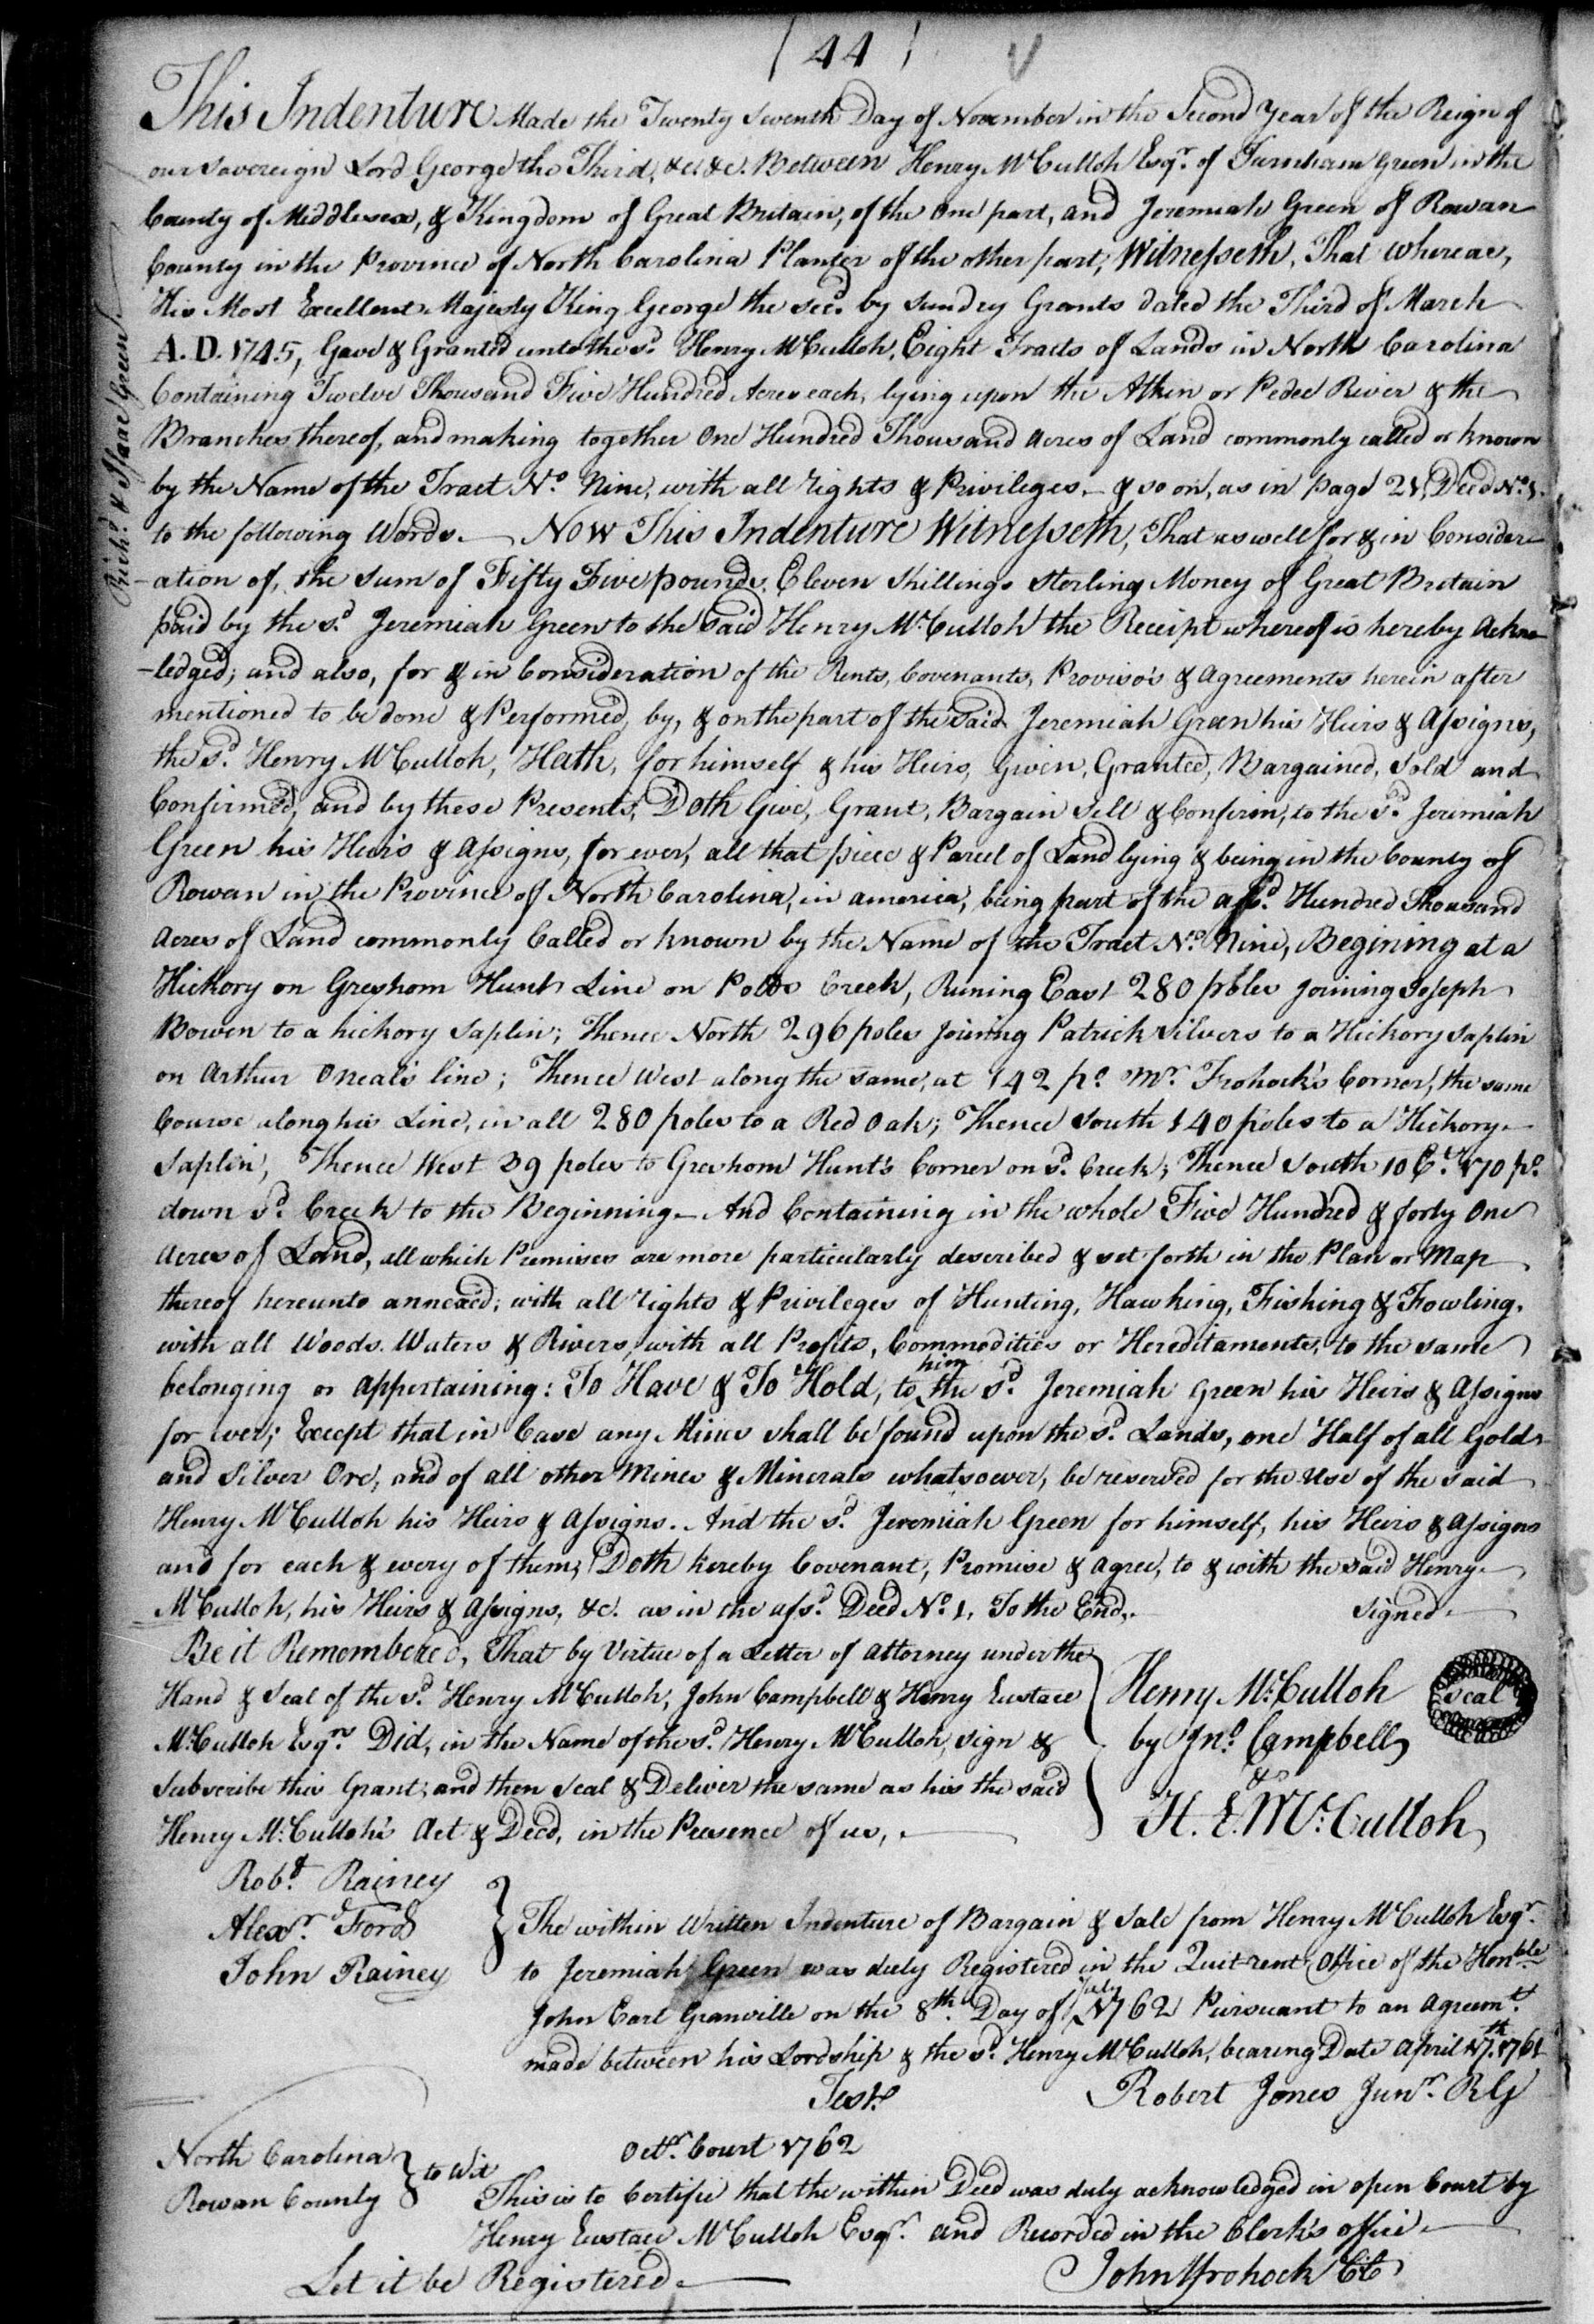 ( 44 )
This Indenture Made the Twenty Seventh Day of November in the Second Year of the Reign of
our Sovereign Lord George the Third, &c. &c. Between Henry McCulloh Esqr. of Turnham Green in the
County of Middlesex, & Kingdom of Great Britain, of the one part, and Jeremiah Green of Rowan
County in the Province of North Carolina Planter of the other part; Witnesseth, That whereas,
His Most Excellent Majesty King George the secd. by Sundry Grants dated the Third of March
A.D. 1745, Gave & Granted unto the sd. Henry McCulloh, Eight Tracts of Lands in North Carolina
Containing Twelve Thousand Five Hundred Acres each, lying upon the Atkin or Pedee River & the
Branches thereof, and making together One Hundred Thousand Acres of Land commonly called or known
by the Name of the Tract No. Nine, with all rights & Privileges, & so on, as in page 21, Deed No. 1.
to the following Words. Now This Indenture Witnesseth, That as well for & in Consider-
-ation of, the Sum of Fifty Five pounds Eleven Shillings Sterling Money of Great Britain
paid by the sd. Jeremiah Green to the said Henry McCulloh the Receipt whereof is hereby Ackno-
-ledged; and also, for & in Consideration of the Rents, Covenants, Proviso's & Agreements herein after
mentioned to be done & Performed, by, & on the part of the said Jeremiah Green his Heirs & Assigns,
the sd. Henry McCulloh, Hath, for himself & his Heirs, Given, Granted, Bargained, Sold and
Confirmed, and by these Presents, Doth Give, Grant, Bargain Sell & Confirm, to the sd. Jeremiah
Green his Heirs & Assigns, for ever, all that piece & Parcel of Land lying & being in the County of
Rowan in the Province of North Carolina, in america, being part of the afsd. Hundred Thousand
Acres of Land commonly Called or known by the Name of the Tract No. Nine, Begining at a
Hickory on Gresham Hunts Line on Potts Creek, Runing East 280 poles joining Joseph
Bowen to a hickory Saplin; Thence North 296 poles joining Patrick Silvers to a Hickory Saplin
on Arthur Oneal's line; Thence West along the same, at 142 po. Mr. Frohock's Corner, the same
Course along his Line, in all 280 poles to a Red Oak; Thence South 140 poles to a Hickory
Saplin, Thence West 39 poles to Gresham Hunt's Corner on sd. Creek; Thence South 10 Et. 170 po.
down sd. Creek to the Beginning. And Containing in the whole Five Hundred & forty One
Acres of Land, all which Premises are more particularly described & set forth in the Plan or Map
thereof hereunto annexed; with all rights & Privileges of Hunting, Hawking, Fishing & Fowling,
with all Woods. Waters & Rivers, with all Profits, Commodities or Hereditaments, to the same
belonging or appertaining: To Have & To Hold, to him the sd. Jeremiah Green his Heirs & Assigns
for ever; Except that in Case any Mines shall be found upon the sd. Lands, one Half of all Gold
and Silver Ore, and of all other Mines & Minerals whatsoever, be reserved for the Use of the said
Henry McCulloh his Heirs & Assigns. And the sd. Jeremiah Green for himself, his Heirs & Assigns
and for each & every of them, Doth hereby Covenant, Promise & agree, to & with the said Henry
McCulloh, his Heirs & Assigns, &c. as in the afsd. Deed No. 1, To the End. Signed
Be it Remembered, That by Virtue of a Letter of attorney under the
Hand & Seal of the sd. Henry McCulloh, John Campbell & Henry Eustace
McCulloh Esqrs. Did, in the Name of the sd. Henry McCulloh, sign &
Subscribe this Grant; and then Seal & Deliver the same as his the said
Henry McCulloh's Act & Deed, in the Presence of us,
Henry McCulloh
Seal
by Jno. Campbell
&
H. E. McCulloh
Robt. Rainey
Alexr. Ford
John Rainey
The within Written Indenture of Bargain & Sale from Henry McCulloh Esqr.
to Jeremiah Green was duly Registered in the Quit-rent Office of the Honble
John Earl Granville on the 8th. Day of July 1762 Pursuant to an Agreemt.
made between his Lordship & the sd. Henry McCulloh, bearing Date April 17th. 1761
Test. Robert Jones Junr. RG
North Carolina
Rowan County
to Wit
Octr. Court 1762
This is to Certifie that the within Deed was duly acknowledged in open Court by
Henry Eustace McCulloh Esqr. and Recorded in the Clerk's office.
Let it be Registered. John Frohock CC
Richd. & Isaac Green